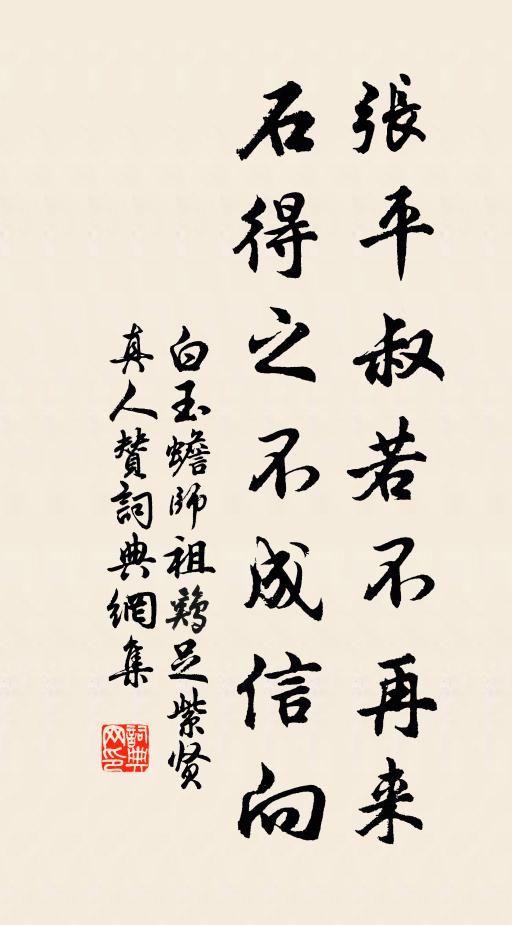 張平叔若不再来
石得之不成信向
白玉蟾師祖鷄足紫贤
真人贊詞典網集
詞典网印